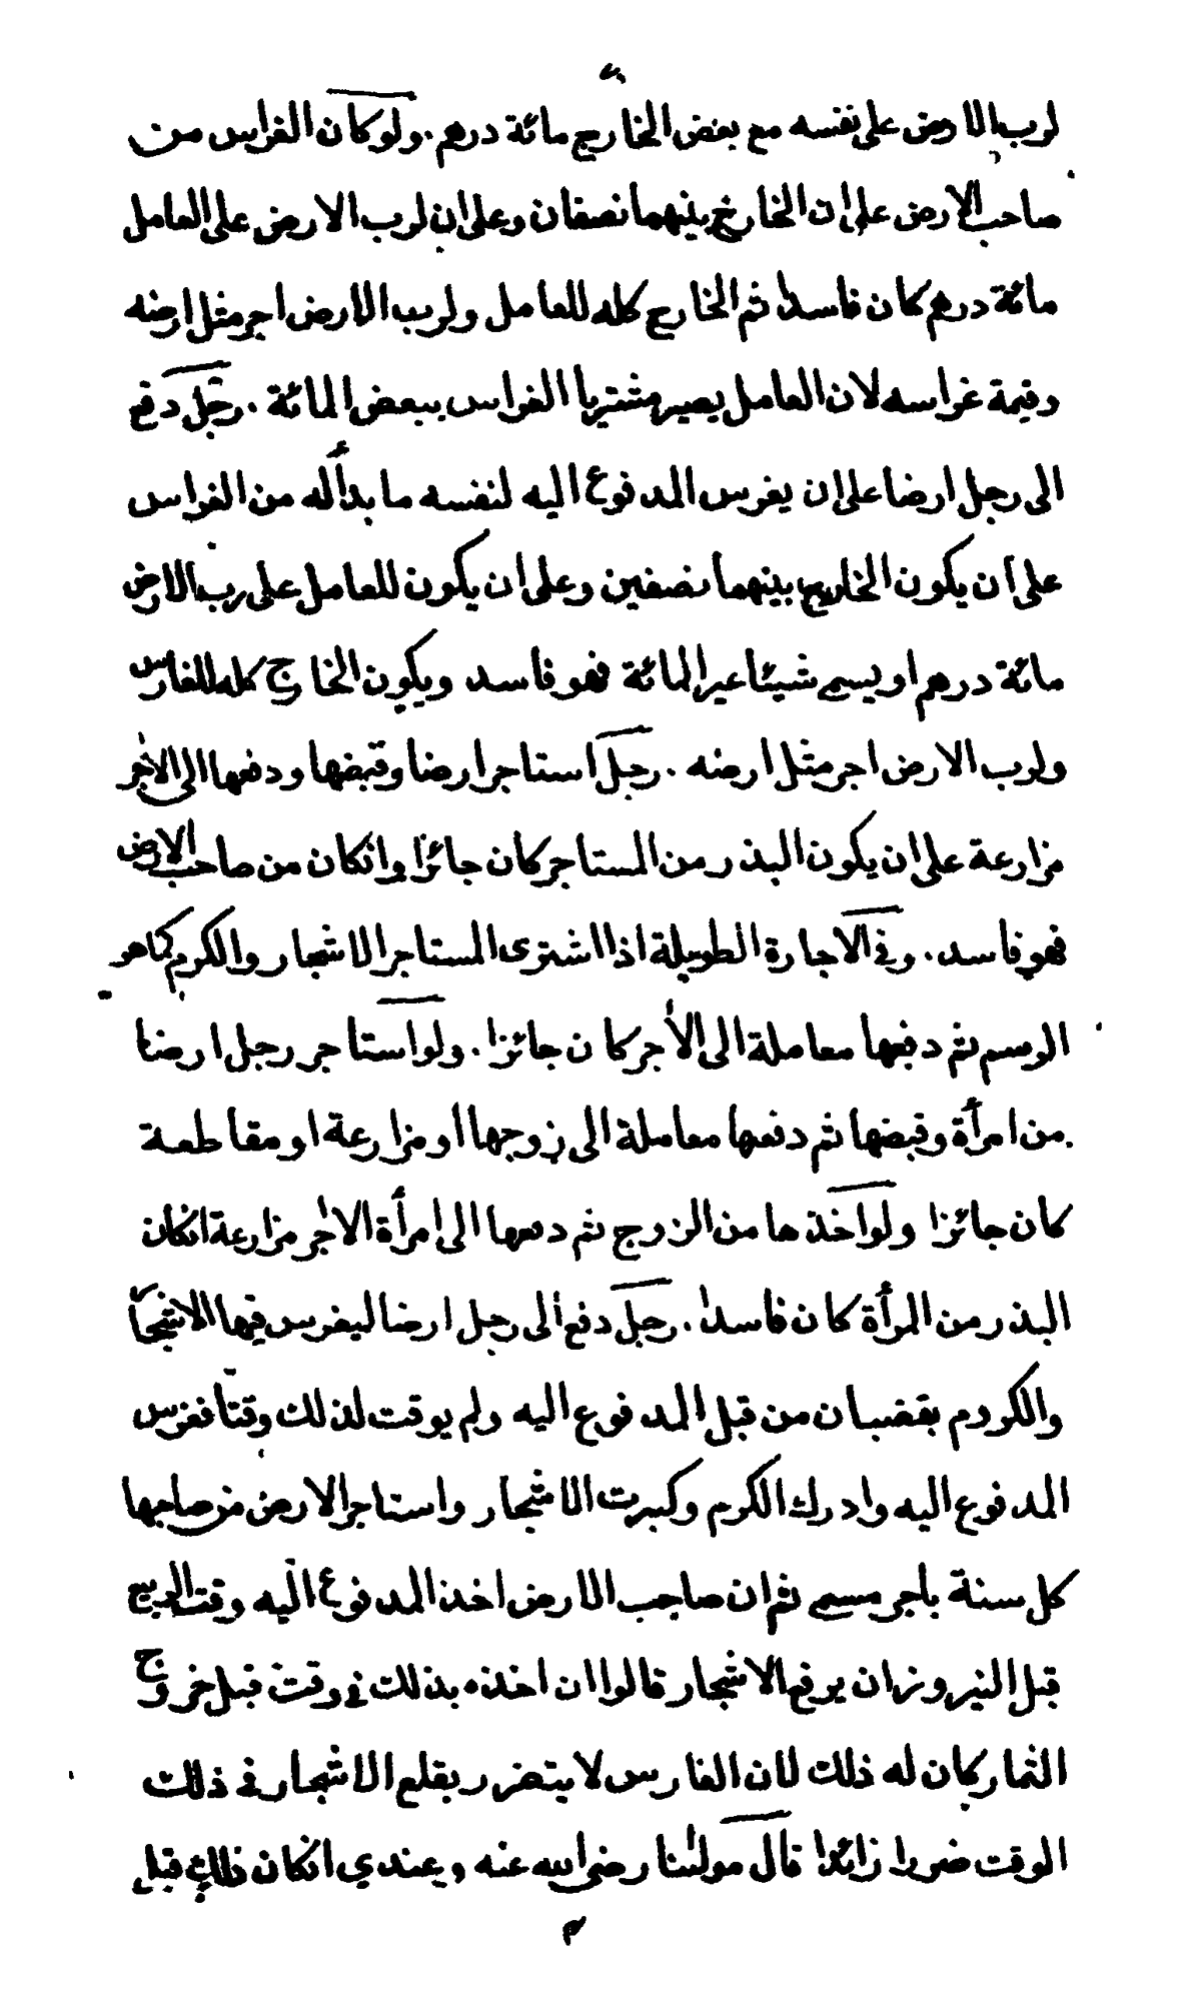 لرب الارض على نفسه مع بعض الخارج مائة درهم . ولو كان الغراس من
صاحب الارض على ان الخارج بينهما نصفان وعلى ان لرب الارض على العامل
مائة درهم كان فاسدا ثم الخارج كله للعامل ولرب الارض اجر مثل ارضه
وقيمة غراسه لان العامل يصير مشتريا الغراس ببعض المائة . رجل دفع
الى رجل ارضا على ان يغرس المدفوع اليه لنفسه ما بدأ له من الغراس
على ان يكون الخارج بينهما نصفين وعلى ان يكون للعامل على رب الارض
مائة درهم او يسمى شيئا غير المائة فهو فاسد ويكون الخارج كله للغارس
ولرب الارض اجر مثل ارضه . رجل استاجر ارضا وقبضها ودفعها الى الاجر
مزارعة على ان يكون البذر من المستاجر كان جائزا وانكان من صاحب الارض
فهو فاسد . وفي الاجارة الطويلة اذا اشترى المستاجر الاشجار والكرم كما هو
الرسم ثم دفعها معاملة الى الأجر كان جائزا . ولو استاجر رجل ارضا
من امرأة وقبضها ثم دفعها معاملة الى زوجها او مزارعة او مقاطعة
كان جائزا ولو اخذها من الزوج ثم دفعها الى امرأة الاجر مزارعة انكان
البذر من المرأة كان فاسدا . رجل دفع الى رجل ارضا ليغرس فيها الاشجار
والكروم بقضبان من قبل المدفوع اليه ولم يوقت لذلك وقتا فغرس
المدفوع اليه وادرك الكرم وكبرت الاشجار واستاجر الارض من صاحبها
كل سنة باجر مسمى ثم ان صاحب الارض اخذ المدفوع اليه وقت الربيع
قبل النيروز ان يرفع الاشجار قالوا ان اخذه بذلك في وقت قبل خروج
الثمار كان له ذلك لان الغارس لا يتضرر بقلع الاشجار في ذلك
الوقت ضررا زائدا قال مولانا رضى الله عنه وعندي انكان ذلك قبل